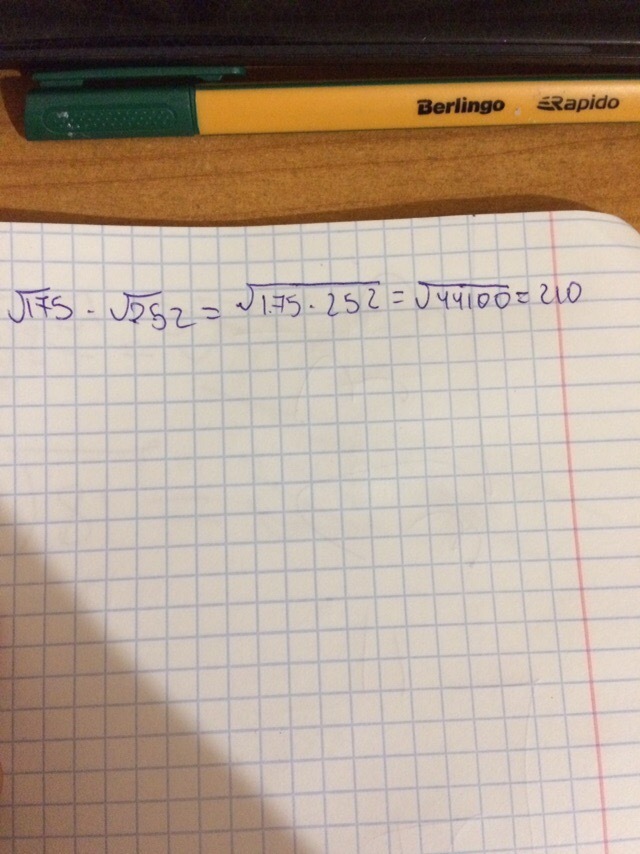 Berlingo Rapido
√175 · √252 = √175 · 252 = √44100 = 210